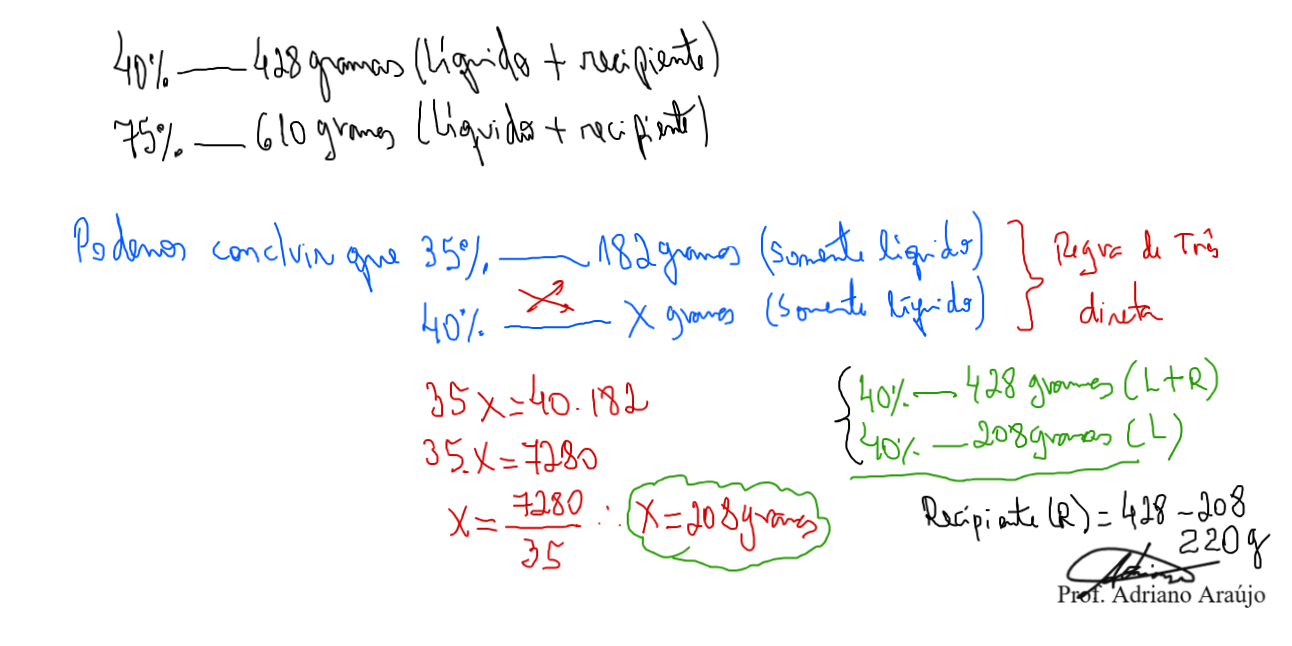 40% — 428 gramas (líquido + recipiente)
75% — 610 gramas (líquido + recipiente)
Podemos concluir que 35% — 182 gramas (somente líquido)
40% — X gramas (somente líquido)
Regra de Três
direta
35X=40.182
35.X=7280
X=7280/35 ∴ X=208 gramas
40% — 428 gramas (L+R)
40% — 208 gramas (L)
Recipiente (R) = 428 - 208
220g
Prof. Adriano Araújo